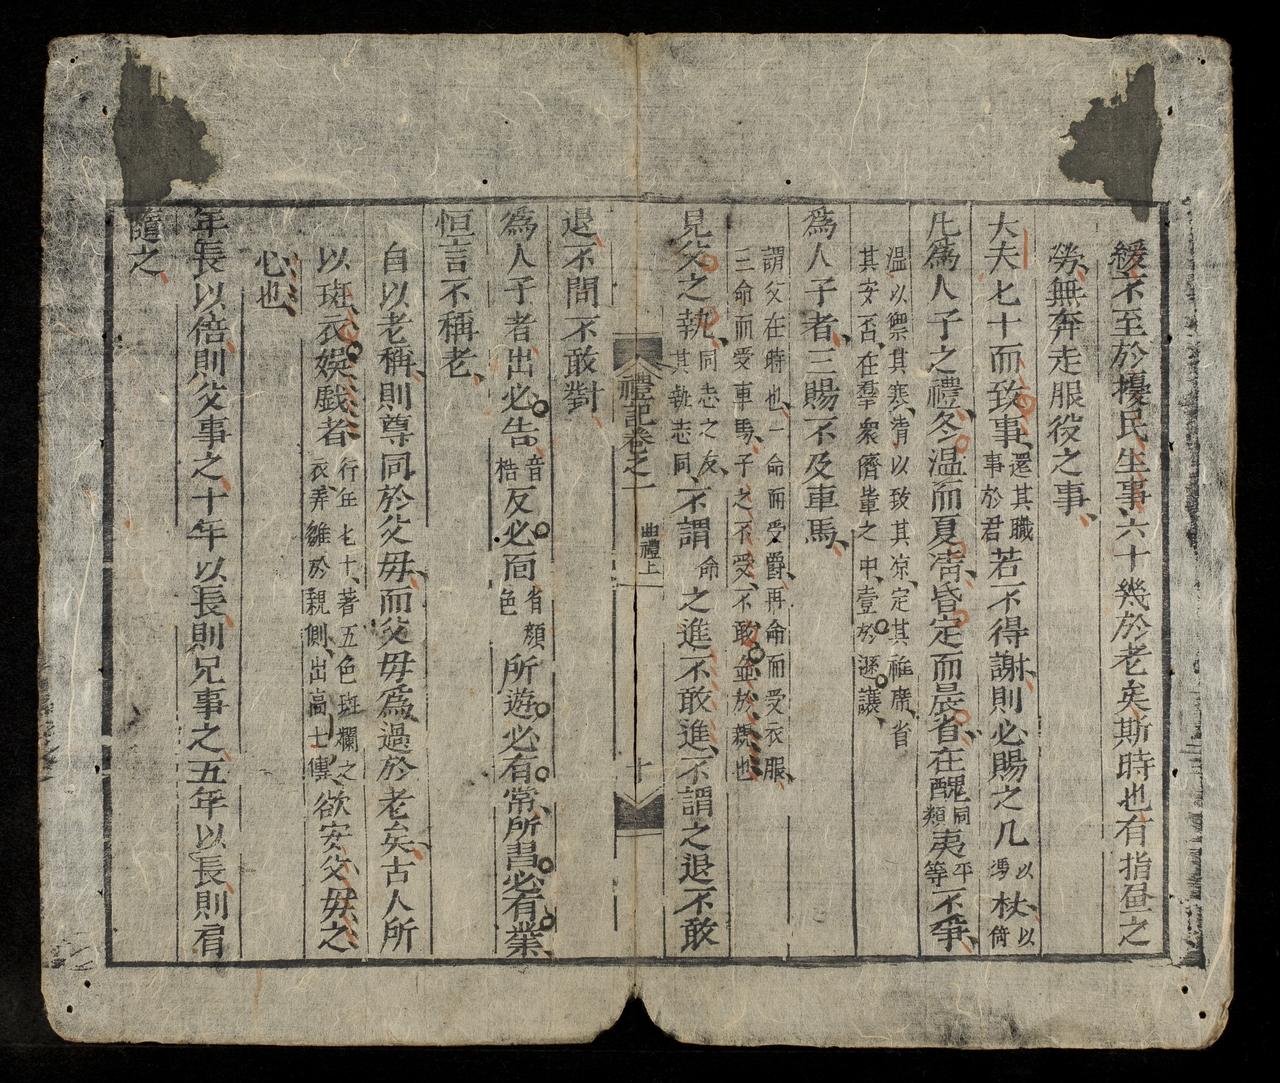 緩不至於擾民生事六十幾於老矣斯時也有指畫之
勞無奔走服役之事
大夫七十而致事還其職事於君若不得謝則必賜之几以馮杖以倚
凡為人子之禮冬溫而夏凊昏定而晨省在醜同類夷平等不爭
溫以禦其寒凊以致其凉定其袵席省
其安否在羣衆儕軰之中壹於遜讓
為人子者三賜不及車馬
謂父在時也一命而受爵再命而受衣服
三命而受車馬子之不受不敢並於親也
見父之執同志之友其執志同不謂命之進不敢進不謂之退不敢
禮記卷之一
曲禮上
十
退不問不敢對
為人子者出必告音梏反必面省顏色所遊必有常所習必有業
恒言不稱老
自以老稱則尊同於父毋而父毋為過於老矣古人所
以斑衣娛戲者行年七十著五色斑斕之衣弄雛於親側出高士傳欲安父毋之
心也
年長以倍則父事之十年以長則兄事之五年以長則肩
隨之